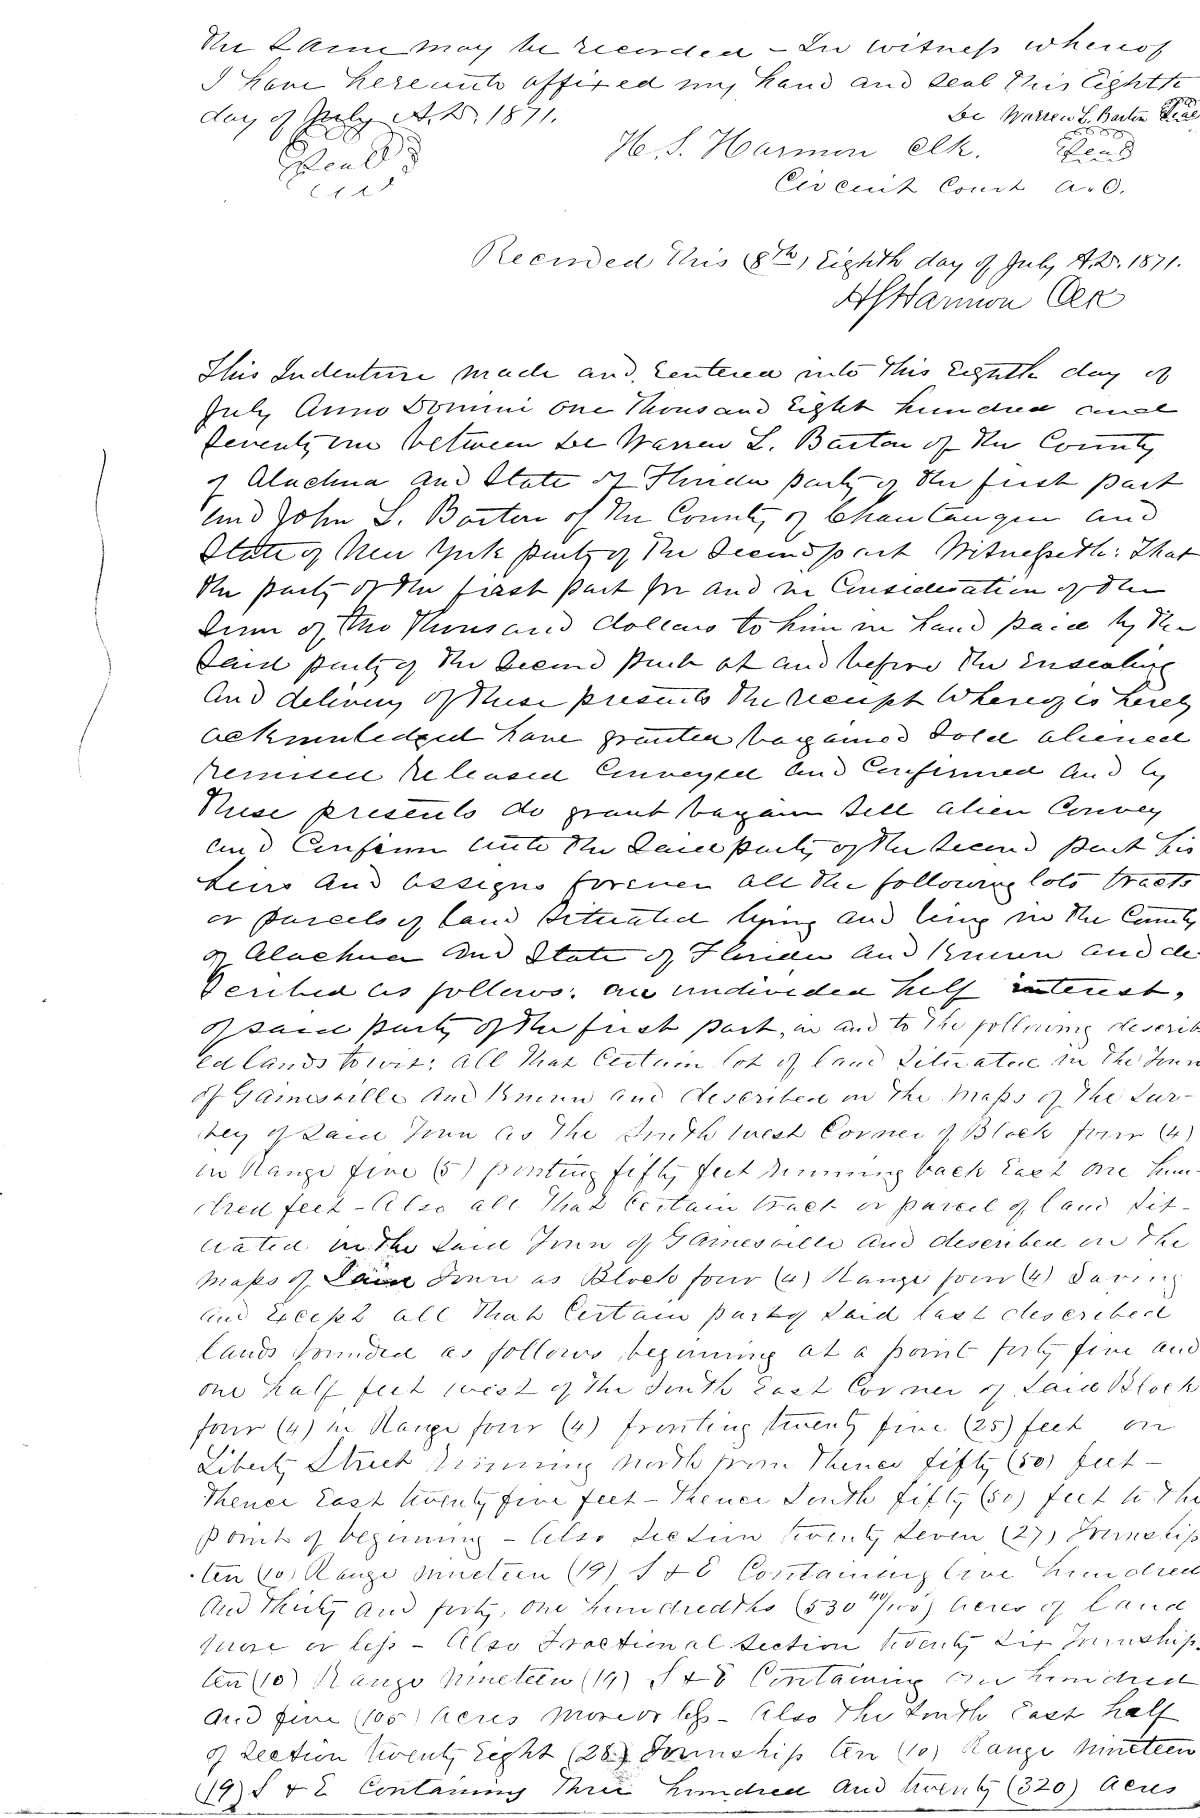 The Same may be recorded - In witness whereof
I have hereunto affixed my hand and seal this Eighth
day of July A.D. 1871.
De Warren L. Barton Seal
H. S. Harmon Clk. Seal
Seal
Circuit Court A.C.
Recorded This (8th) Eighth day of July A.D. 1871.
H S Harmon Clk
This Indenture made and Eentered into This Eighth day of
July Anno Domini One Thousand Eight hundred and
Seventy one between De Warren L. Barton of the County
of Alachua and State of Florida party of the first part
and John L. Barton of the County of Chautauqua and
State of New York party of the Second part Witnesseth: That
the party of the first part for and in Consideration of the
Sum of two Thousand dollars to him in hand paid by the
Said party of the Second part at and before the Ensealing
and delivery of these presents the receipt Whereof is hereby
acknowledged have granted bargained Sold aliened
remised released Conveyed and Confirmed and by
these presents do grant bargain Sell alien Convey
and Confirm unto the Said party of the Second part his
heirs and assigns forever all the following lots tracts
or parcels of land Situated lying and being in the County
of Alachua and State of Florida and Known and de-
scribed as follows: an undivided half interest,
of said party of the first part, in and to the following describ
ed lands to wit: all that Certain lot of land Situated in the Town
of Gainesville and Known and described on the maps of the Sur-
vey of Said Town as the South West Corner of Block four (4)
in Range five (5) fronting fifty feet running back East one hun-
dred feet - Also all that Certain tract or parcel of land Sit-
uated in the Said Town of Gainesville and described on the
maps of Said Town as Block four (4) Range four (4) Saving
and Except all that Certain part of Said last described
lands bounded as follows beginning at a point forty five and
one half feet west of the South East Corner of Said Block
four (4) in Range four (4) fronting twenty five (25) feet on
Liberty Street running north from Thence fifty (50) feet -
Thence East twenty five feet - Thence South fifty (50) feet to the
point of beginning - Also Section twenty Seven (27) Township
ten (10) Range nineteen (19) S & E Containing five hundred
and Thirty and forty, one hundredths (530 40/100) acres of land
more or less - Also Fractional Section twenty Six Township
ten (10) Range nineteen (19) S & E Containing one hundred
and five (105) acres more or less - Also the South East half
of Section twenty Eight (28) Township ten (10) Range nineteen
(19) S & E Containing Three hundred and twenty (320) acres